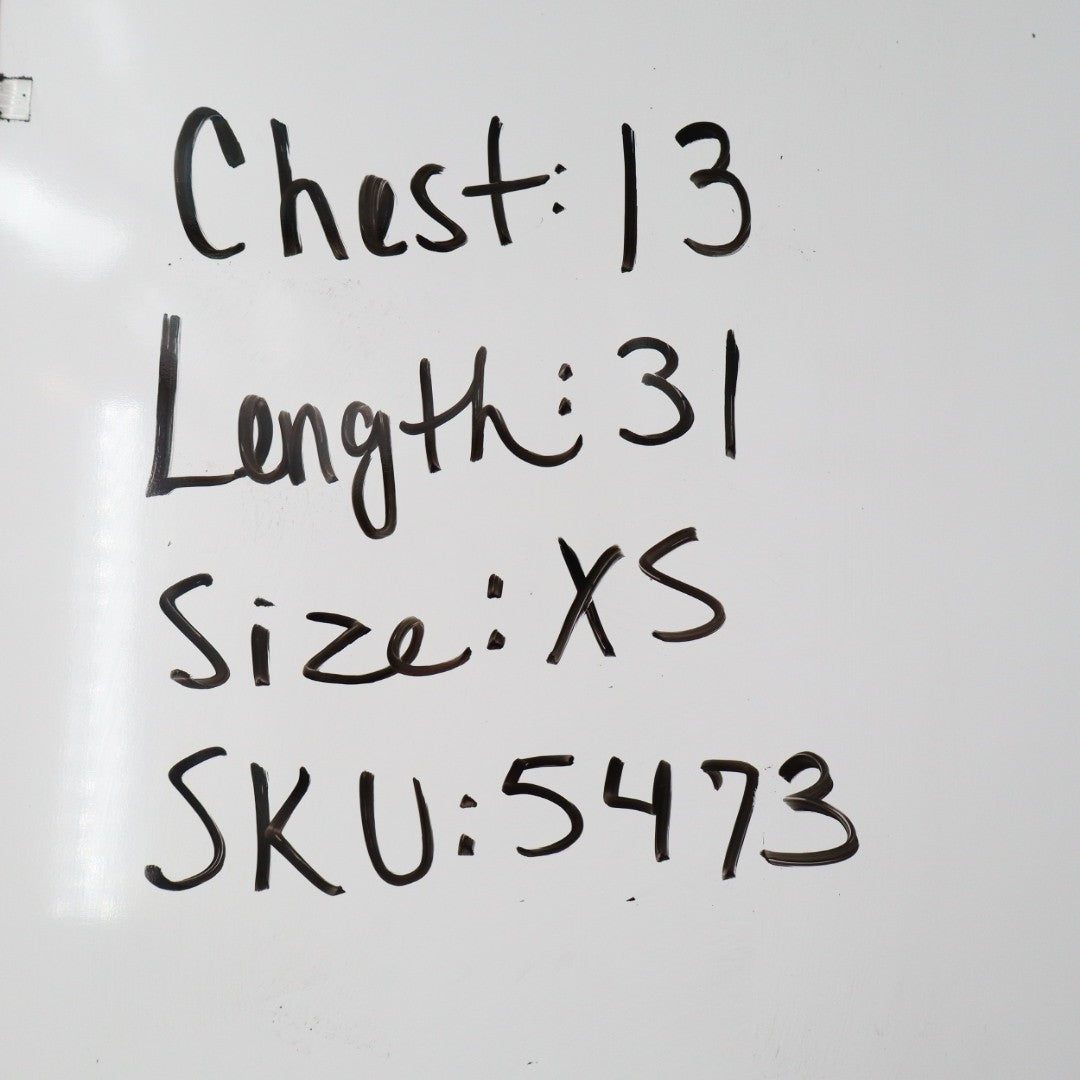 Chest: 13
Length: 31
Size: XS
SKU: 5473